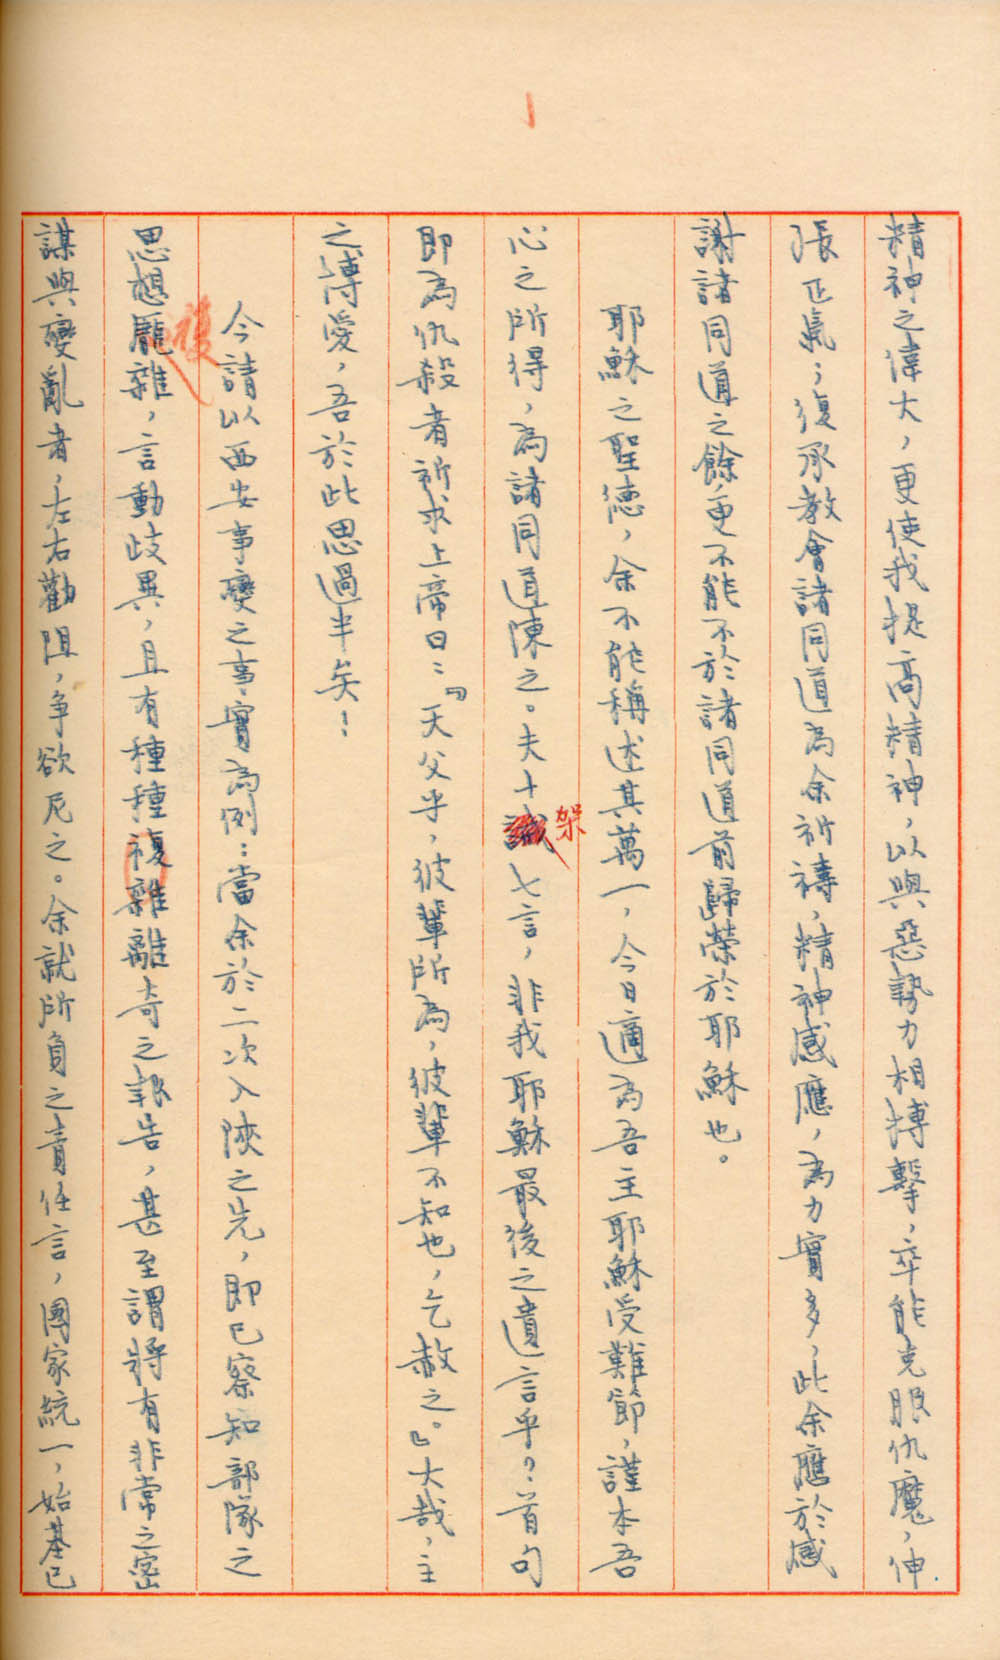 精神之偉大，更使我提高精神，以與惡勢力相搏擊，卒能克服仇魔，伸
張正氣；復承教會諸同道為余祈禱，精神感應，為力實多，此余應於感
謝諸同道之餘，更不能不於諸同道前歸榮於耶穌也。
耶穌之聖德，余不能稱述其萬一，今日適為吾主耶穌受難節，謹本吾
心之所得，為諸同道陳之。夫十架七言，非我耶穌最後之遺言乎？首句
即為仇殺者祈求上帝曰：『天父乎，彼輩所為，彼輩不知也，乞赦之。』大哉，主
之博愛，吾於此思過半矣！
今請以西安事變之事實為例：當余於二次入陝之先，即已察知部隊之
複
思想龐雜，言動歧異，且有種種複雜離奇之報告，甚至謂將有非常之密
謀與變亂者，左右勸阻，爭欲尼之。余就所負之責任言，國家統一，始基已